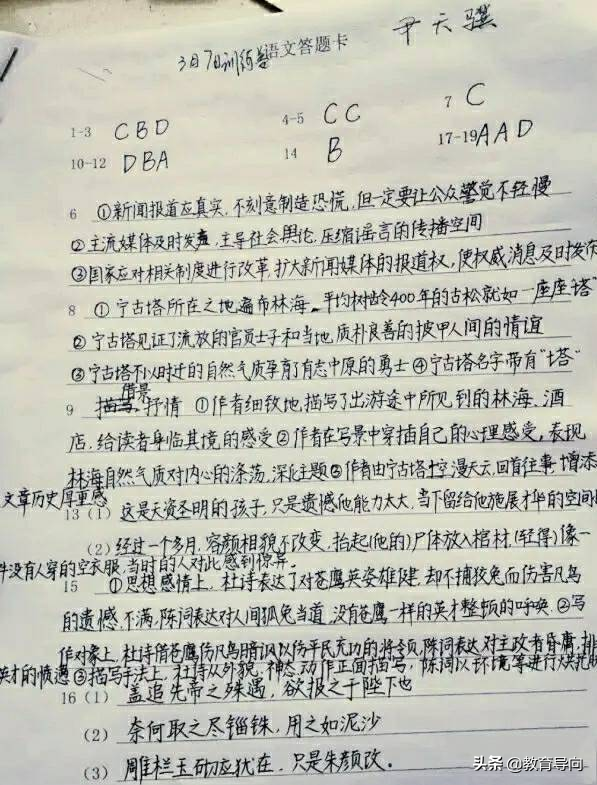 尹天骐
3月7日训练卷语文答题卡
1-3 CBD 4-5 CC 7 C
10-12 DBA 14 B 17-19 AAD
6 ①新闻报道应真实,不刻意制造恐慌,但一定要让公众警觉不轻慢
②主流媒体及时发声,主导社会舆论,压缩谣言的传播空间
③国家应对相关制度进行改革,扩大新闻媒体的报道权,使权威消息及时发
8 ①宁古塔所在之地遍布林海,平均树龄400年的古松就如一座座"塔"
②宁古塔见证了流放的官员士子和当地质朴良善的披甲人间的情谊
③宁古塔不以时迁的自然气质孕育了有志中原的勇士 ④宁古塔名字带有"塔"
9 借景抒情 ①作者细致地描写了出游途中所见到的林海、酒
店,给读者身临其境的感受②作者在写景中穿插自己的心理感受,表现
林海自然气质对内心的涤荡,深化主题③作者由宁古塔 漫天云,回首往事,增添
文章历史厚重感
13 (1) 这是天资圣明的孩子,只是遗憾他能力太大,当下留给他施展才华的空间
(2) 经过一个多月,容颜相貌不改变,抬起(他的)尸体放入棺材,(轻得)像一
件没有人穿的空衣服,当时的人对此感到惊异.
15 ①思想感情上,杜诗表达了对苍鹰英姿雄健,却不捕狡兔而伤害凡鸟
的遗憾、不满,陈词表达对人间狐兔当道,没有苍鹰一样的英才整顿的呼唤.②写
作对象上,杜诗借苍鹰伤凡鸟暗讽以伤平民充功的将领,陈词表达对主政者昏庸,排
英才的愤懑③描写手法上,杜诗从外貌,神态,动作正面描写,陈词以环境等进行烘托
16 (1) 盖追先帝之殊遇,欲报之于陛下也
(2) 奈何取之尽锱铢,用之如泥沙
(3) 雕栏玉砌应犹在,只是朱颜改.
头条 @教育导向